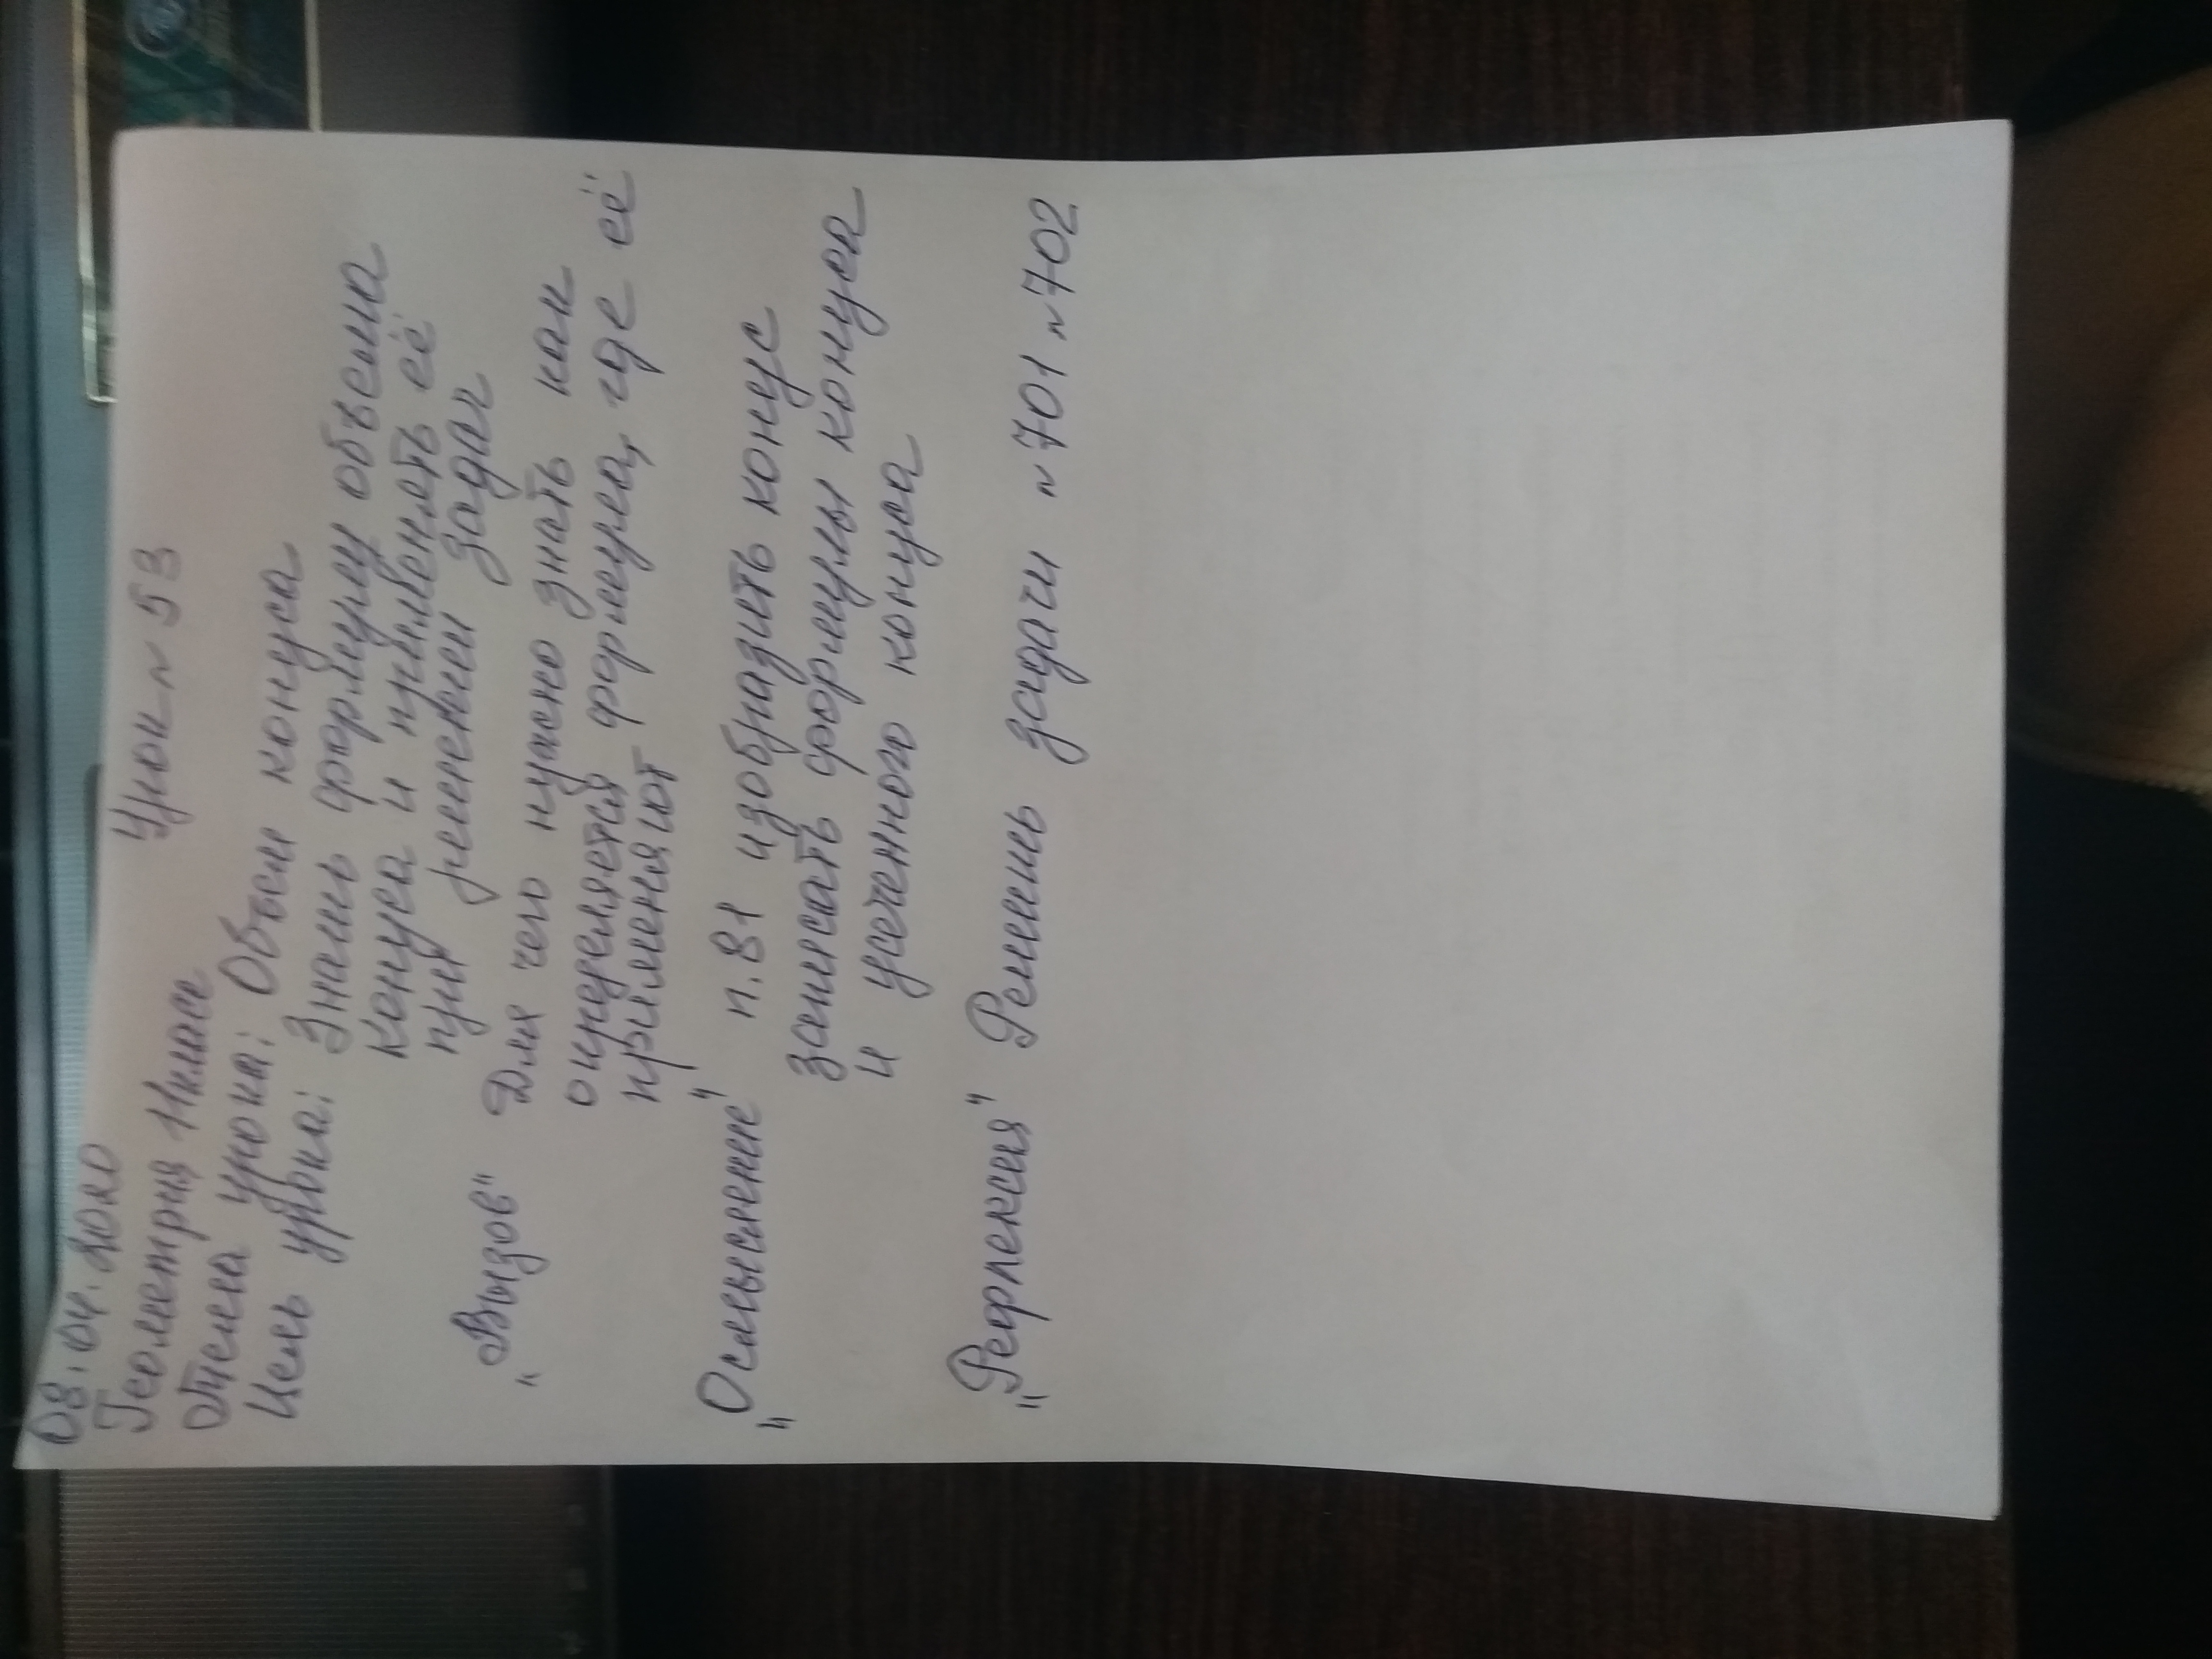 08.04.2020 Урок №53
Геометрия 11класс
Тема урока: Объем конуса
Цель урока: Знать формулу объема
конуса и применять её
при решении задач
"Вызов" Для чего нужно знать как
определяется формула, где её
применяют
"Осмысление" п.81 изобразить конус
записать формулы конуса
и усеченного конуса
"Рефлексия" Решить задачи №701 №702